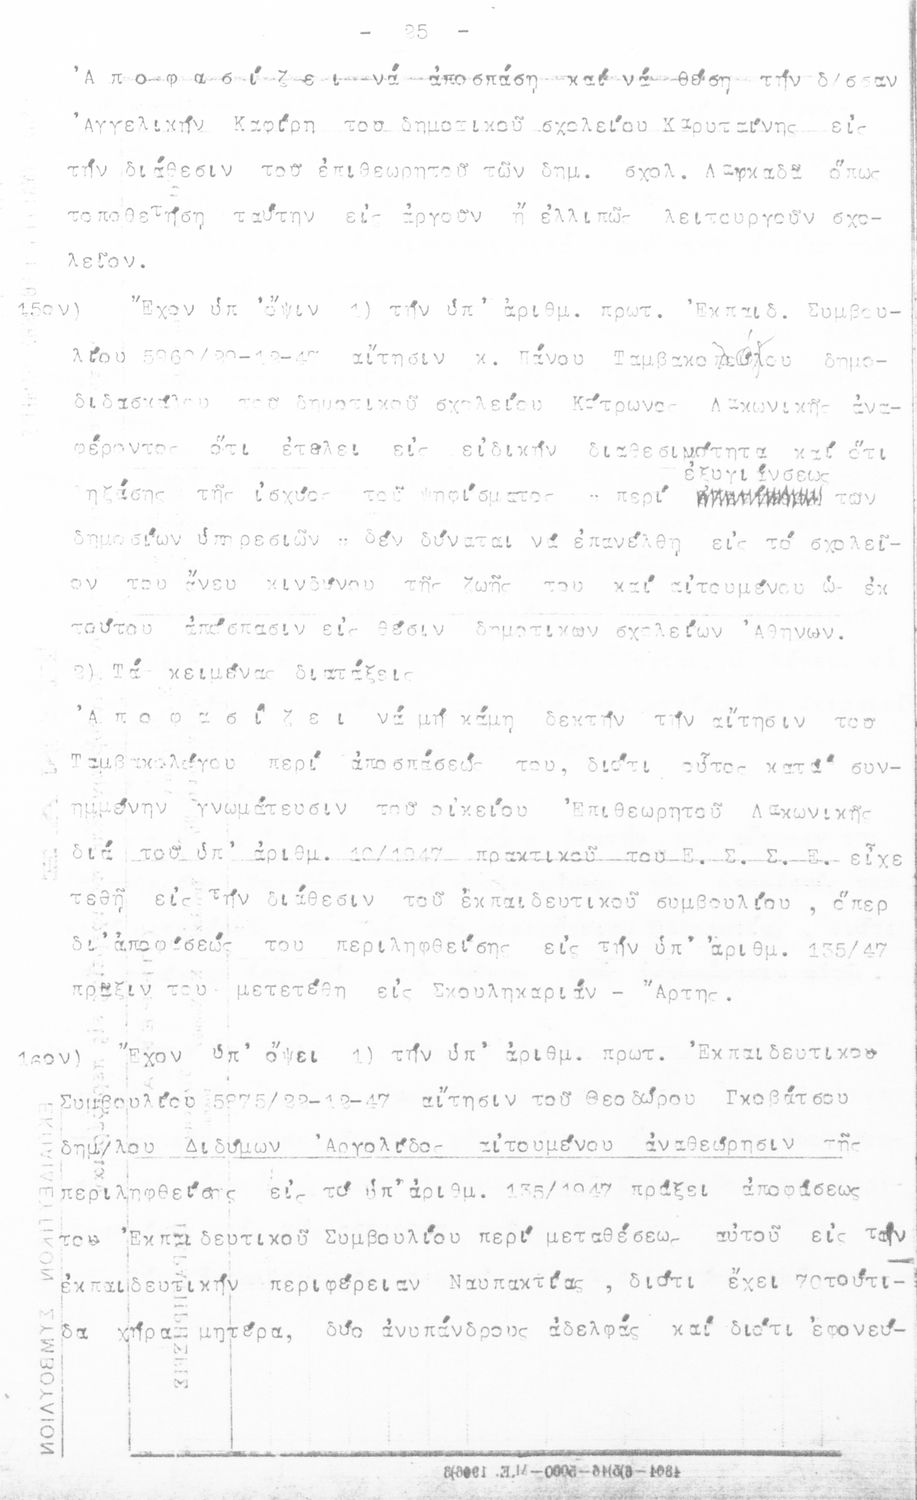 - 25 -
'Α π ο φ α σ ί ζ ε ι νά ἀποσπάση καί νά θέση τήν δ/σσαν
'Αγγελικήν Καφίρη του δημοτικοῦ σχολείου Καρυταίνης εἰς
τήν διάθεσιν τοῦ ἐπιθεωρητοῦ τῶν δημ. σχολ. Λαγκαδᾶ ὅπως
τοποθετήση ταύτην εἰς ἀργοῦν ἤ ἐλλιπῶς λειτουργοῦν σχο-
λεῖον.
15ον) Ἔχον ὑπ 'ὄψιν 1) τήν ὑπ' ἀριθμ. πρωτ. 'Εκπαιδ. Συμβου-
λίου 5960/22-12-47 αἴτησιν κ. Πάνου Ταμβακολόγου δημο-
διδασκάλου τοῦ δημοτικοῦ σχολείου Κάτρωνος Λακωνικῆς ἀνα-
φέροντος ὅτι ἐτέλει εἰς εἰδικήν διαθεσιμότητα καί ὅτι
ἐξυγιάνσεως
ληξάσης τῆς ἰσχύος τοῦ ψηφίσματος " περί τῶν
δημοσίων ὑπηρεσιῶν " δέν δύναται νά ἐπανέλθη εἰς τό σχολεῖ-
ον του ἄνευ κινδύνου τῆς ζωῆς του καί αἰτουμένου ὡς ἐκ
τούτου ἀπόσπασιν εἰς θέσιν δημοτικων σχολείων 'Αθηνων.
2) Τάς κειμένας διατάξεις
'Α π ο φ α σ ί ζ ε ι νά μή κάμη δεκτήν τήν αἴτησιν του
Ταμβακολόγου περί ἀποσπάσεώς του, διότι οὗτος κατά συν-
ημμένην γνωμάτευσιν τοῦ οἰκείου 'Επιθεωρητοῦ Λακωνικῆς
διά τοῦ ὑπ' ἀριθμ. 10/1947 πρακτικοῦ του Ε. Σ. Σ. Ε. εἶχε
τεθῆ εἰς τήν διάθεσιν τοῦ ἐκπαιδευτικοῦ συμβουλίου , ὅπερ
δι'ἀποφάσεώς του περιληφθείσης εἰς τήν ὑπ' ἀριθμ. 135/47
πρᾶξιν του μετετέθη εἰς Σκουληκαριάν - Ἄρτης.
16ον) Ἔχον ὑπ' ὄψει 1) τήν ὑπ' ἀριθμ. πρωτ. 'Εκπαιδευτικου
Συμβουλίου 5975/22-12-47 αἴτησιν τοῦ Θεοδώρου Γκοβάτσου
δημ/λου Διδύμων 'Αργολίδος αἰτουμένου ἀναθεώρησιν τῆς
περιληφθείσης εἰς τό ὑπ'ἀριθμ. 135/1947 πράξει ἀποφάσεως
του 'Εκπαιδευτικοῦ Συμβουλίου περί μεταθέσεως αὐτοῦ εἰς τήν
ἐκπαιδευτικήν περιφέρειαν Ναυπακτίας , διότι ἔχει 70τούτι-
δα χήραν μητέρα, δύο ἀνυπάνδρους ἀδελφάς καί διότι ἐφονεύ-
ΕΚΠΑΙΔΕΥΤΙΚΟΝ ΣΥΜΒΟΥΛΙΟΝ